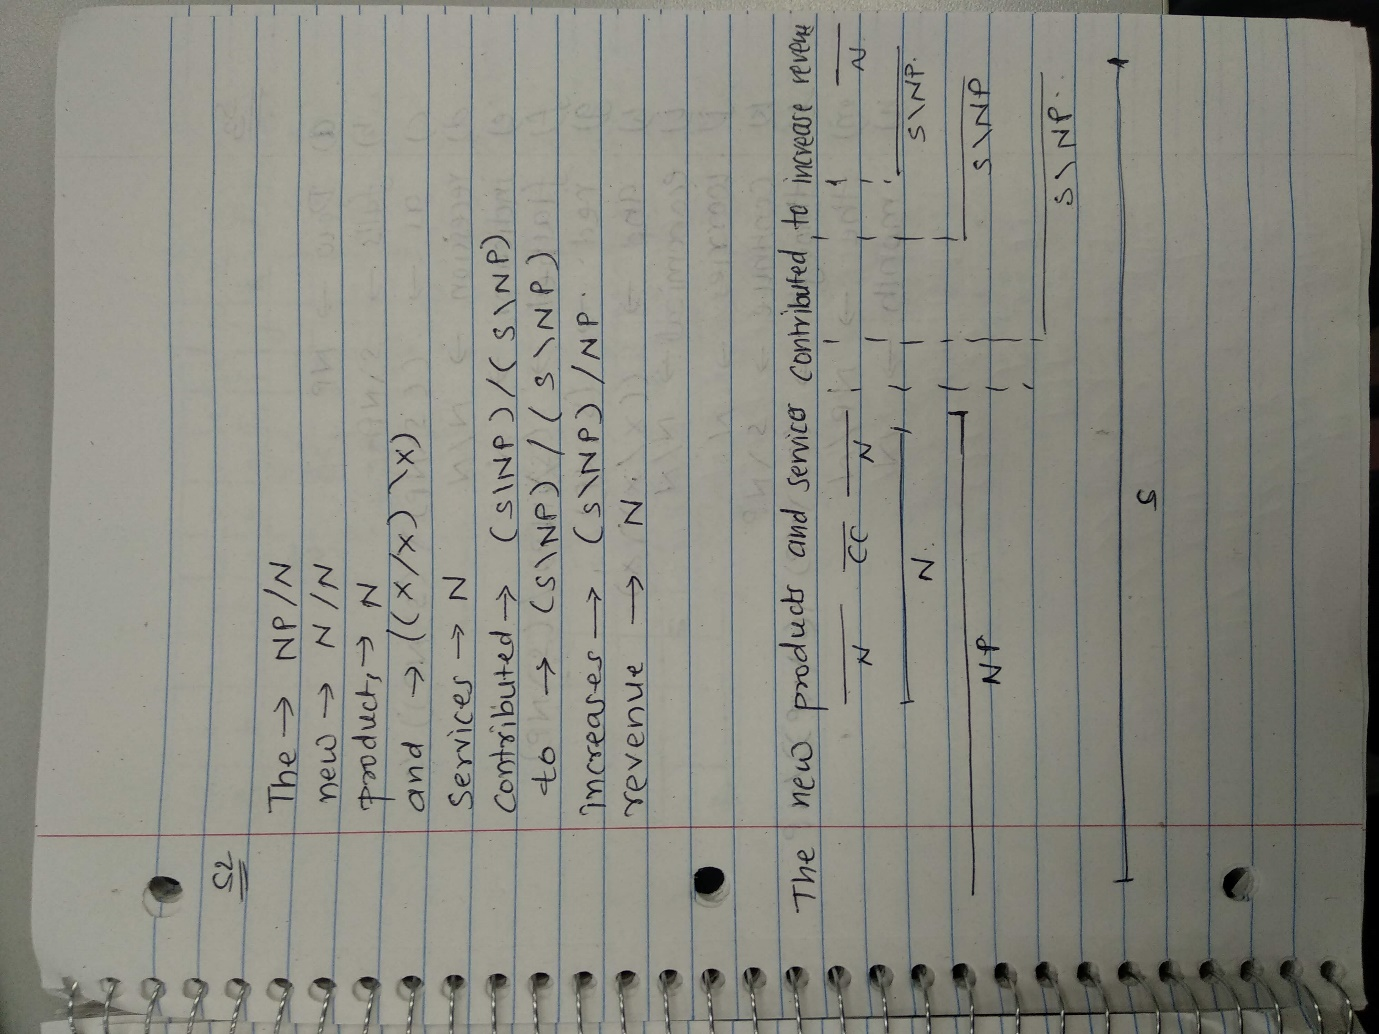 S2
The → NP/N
new → N/N
products → N
and → ((x/x)\x)
Services → N
Contributed → (S\NP)/(S\NP)
to → (S\NP)/(S\NP)
increases → (S\NP)/NP.
revenue → N.
The new products and services contributed to increase revenue
N CC N N
N. S\NP.
NP S\NP
S\NP.
S